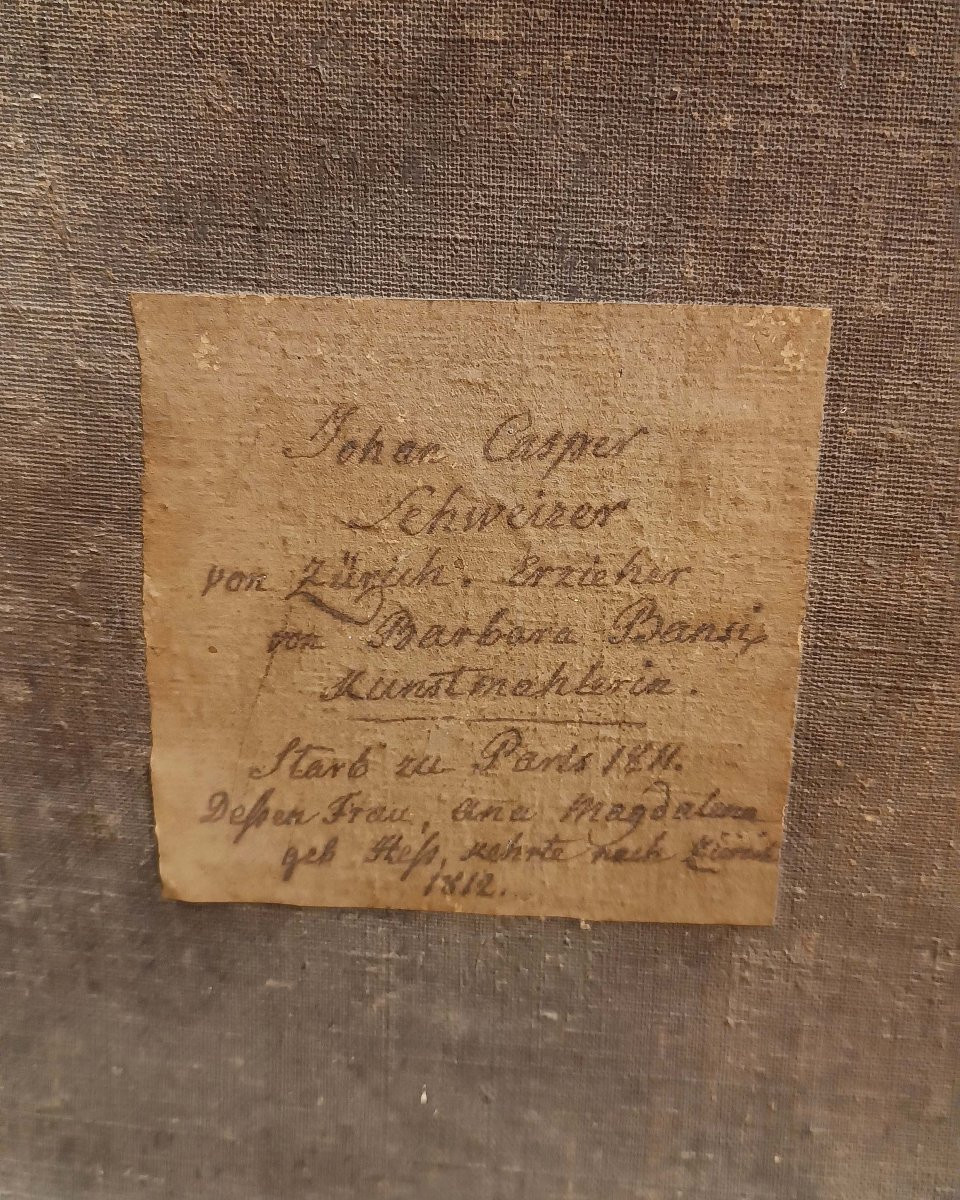 Johan Casper
Schweizer
von Zürich. Erzieher
von Barbara Bansi,
Kunstmahlerin.
Starb zu Paris 1811.
Deßen Frau, ana Magdalena
geb Heß, kehrte nach Zürich
1812.